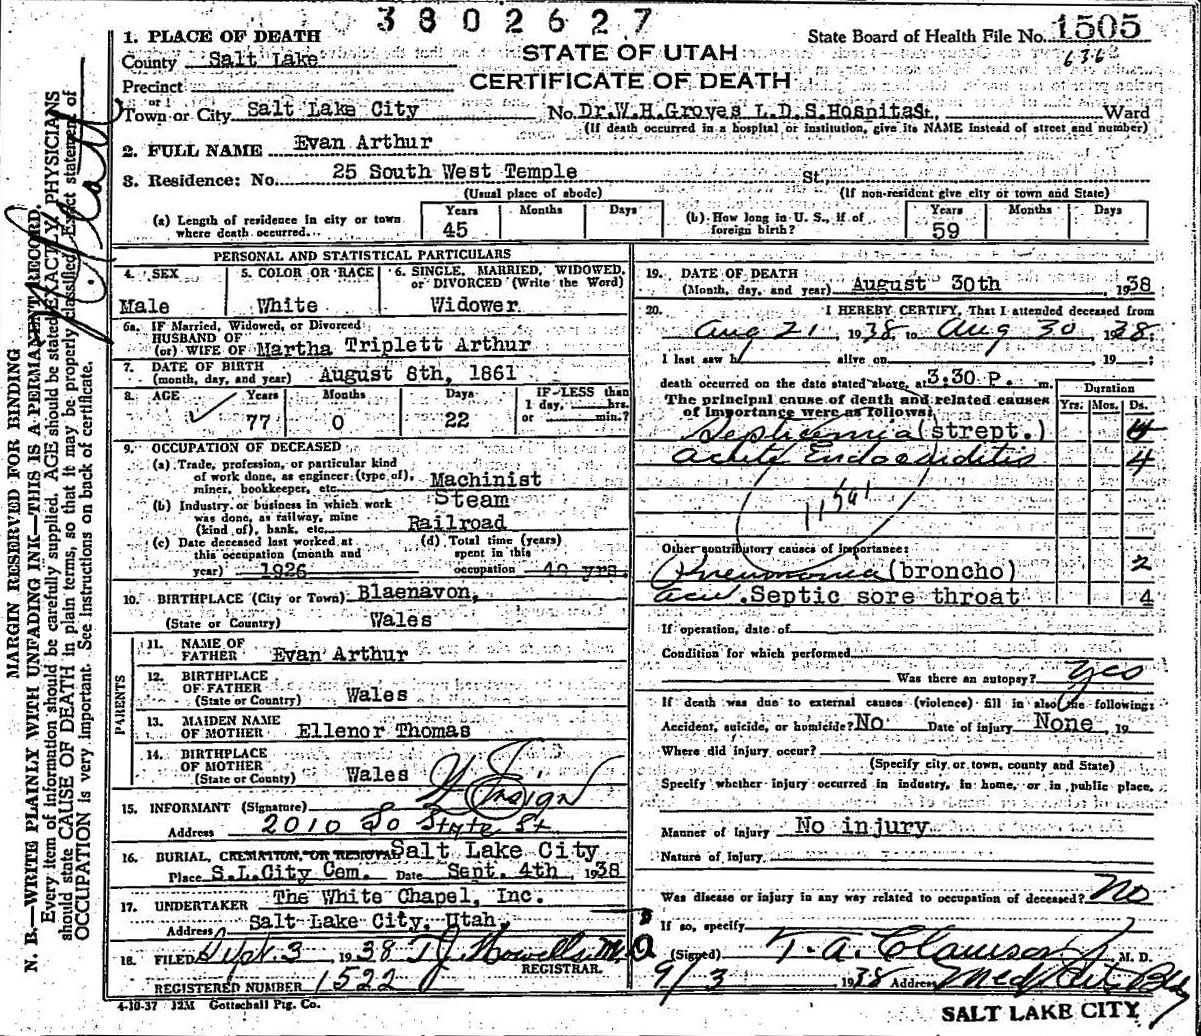 3802627
State Board of Health File No. 1505
636
1. PLACE OF DEATH
STATE OF UTAH
County Salt Lake
CERTIFICATE OF DEATH
Precinct
or
Town or City Salt Lake City No. Dr.W.H.Groves L.D.S.Hospital St., Ward
(If death occurred in a hospital or institution, give its NAME instead of street and number)
2. FULL NAME Evan Arthur
3. Residence: No. 25 South West Temple St.
(Usual place of abode) (If non-resident give city or town and State)
(a) Length of residence in city or town where death occurred... Years 45 Months Days
(b) How long in U. S., if of foreign birth? Years 59 Months Days
PERSONAL AND STATISTICAL PARTICULARS
4. SEX Male
5. COLOR OR RACE White
6. SINGLE, MARRIED, WIDOWED, or DIVORCED (Write the Word) Widower
6a. IF Married, Widowed, or Divorced
HUSBAND OF
(or) WIFE OF Martha Triplett Arthur
7. DATE OF BIRTH
(month, day, and year) August 8th, 1861
8. AGE Years 77 Months 0 Days 22 IF LESS than 1 day, hrs. or min.?
9. OCCUPATION OF DECEASED
(a) Trade, profession, or particular kind
of work done, as engineer (type of),
miner, bookkeeper, etc. Machinist
(b) Industry or business in which work
was done, as railway, mine
(kind of), bank, etc. Steam Railroad
(c) Date deceased last worked at
this occupation (month and
year) 1926
(d) Total time (years)
spent in this
occupation 40 yrs.
10. BIRTHPLACE (City or Town) Blaenavon,
(State or Country) Wales
PARENTS
11. NAME OF
FATHER Evan Arthur
12. BIRTHPLACE
OF FATHER
(State or Country) Wales
13. MAIDEN NAME
OF MOTHER Ellenor Thomas
14. BIRTHPLACE
OF MOTHER
(State or Country) Wales
15. INFORMANT (Signature)
Address 2010 So State St
16. BURIAL, CREMATION, OR REMOVAL Salt Lake City
Place S.L.City Cem. Date Sept. 4th 1938
17. UNDERTAKER The White Chapel, Inc.
Address Salt Lake City, Utah,
18. FILED Sept. 3 1938 T J Howells M.D
REGISTRAR.
REGISTERED NUMBER 1522
4-10-37 12M Gottschall Ptg. Co.
19. DATE OF DEATH
(Month, day, and year) August 30th 1938
20. I HEREBY CERTIFY, That I attended deceased from
Aug 21 1938 to Aug 30 1938.
I last saw h alive on 19 ;
death occurred on the date stated above, at 3:30 P. m.
The principal cause of death and related causes
of importance were as follows:
Duration
Yrs. Mos. Ds.
Septicemia (strept.) 4
Acute Endocarditis 4
Other contributory causes of importance:
Pneumonia (broncho) 2
Septic sore throat 4
If operation, date of
Condition for which performed
Was there an autopsy? Yes
If death was due to external causes (violence) fill in also the following:
Accident, suicide, or homicide? No Date of injury None, 19
Where did injury occur?
(Specify city or town, county and State)
Specify whether injury occurred in industry, in home, or in public place.
Manner of injury No injury
Nature of Injury
Was disease or injury in any way related to occupation of deceased? No
If so, specify
(Signed) T. A. Clawson Jr M. D.
9/3 1938 Address Med Arts Bldg
SALT LAKE CITY
MARGIN RESERVED FOR BINDING
N. B.—WRITE PLAINLY WITH UNFADING INK—THIS IS A PERMANENT RECORD.
Every item of information should be carefully supplied. AGE should be stated EXACTLY. PHYSICIANS
should state CAUSE OF DEATH in plain terms, so that it may be properly classified. Exact statement of
OCCUPATION is very important. See instructions on back of certificate.